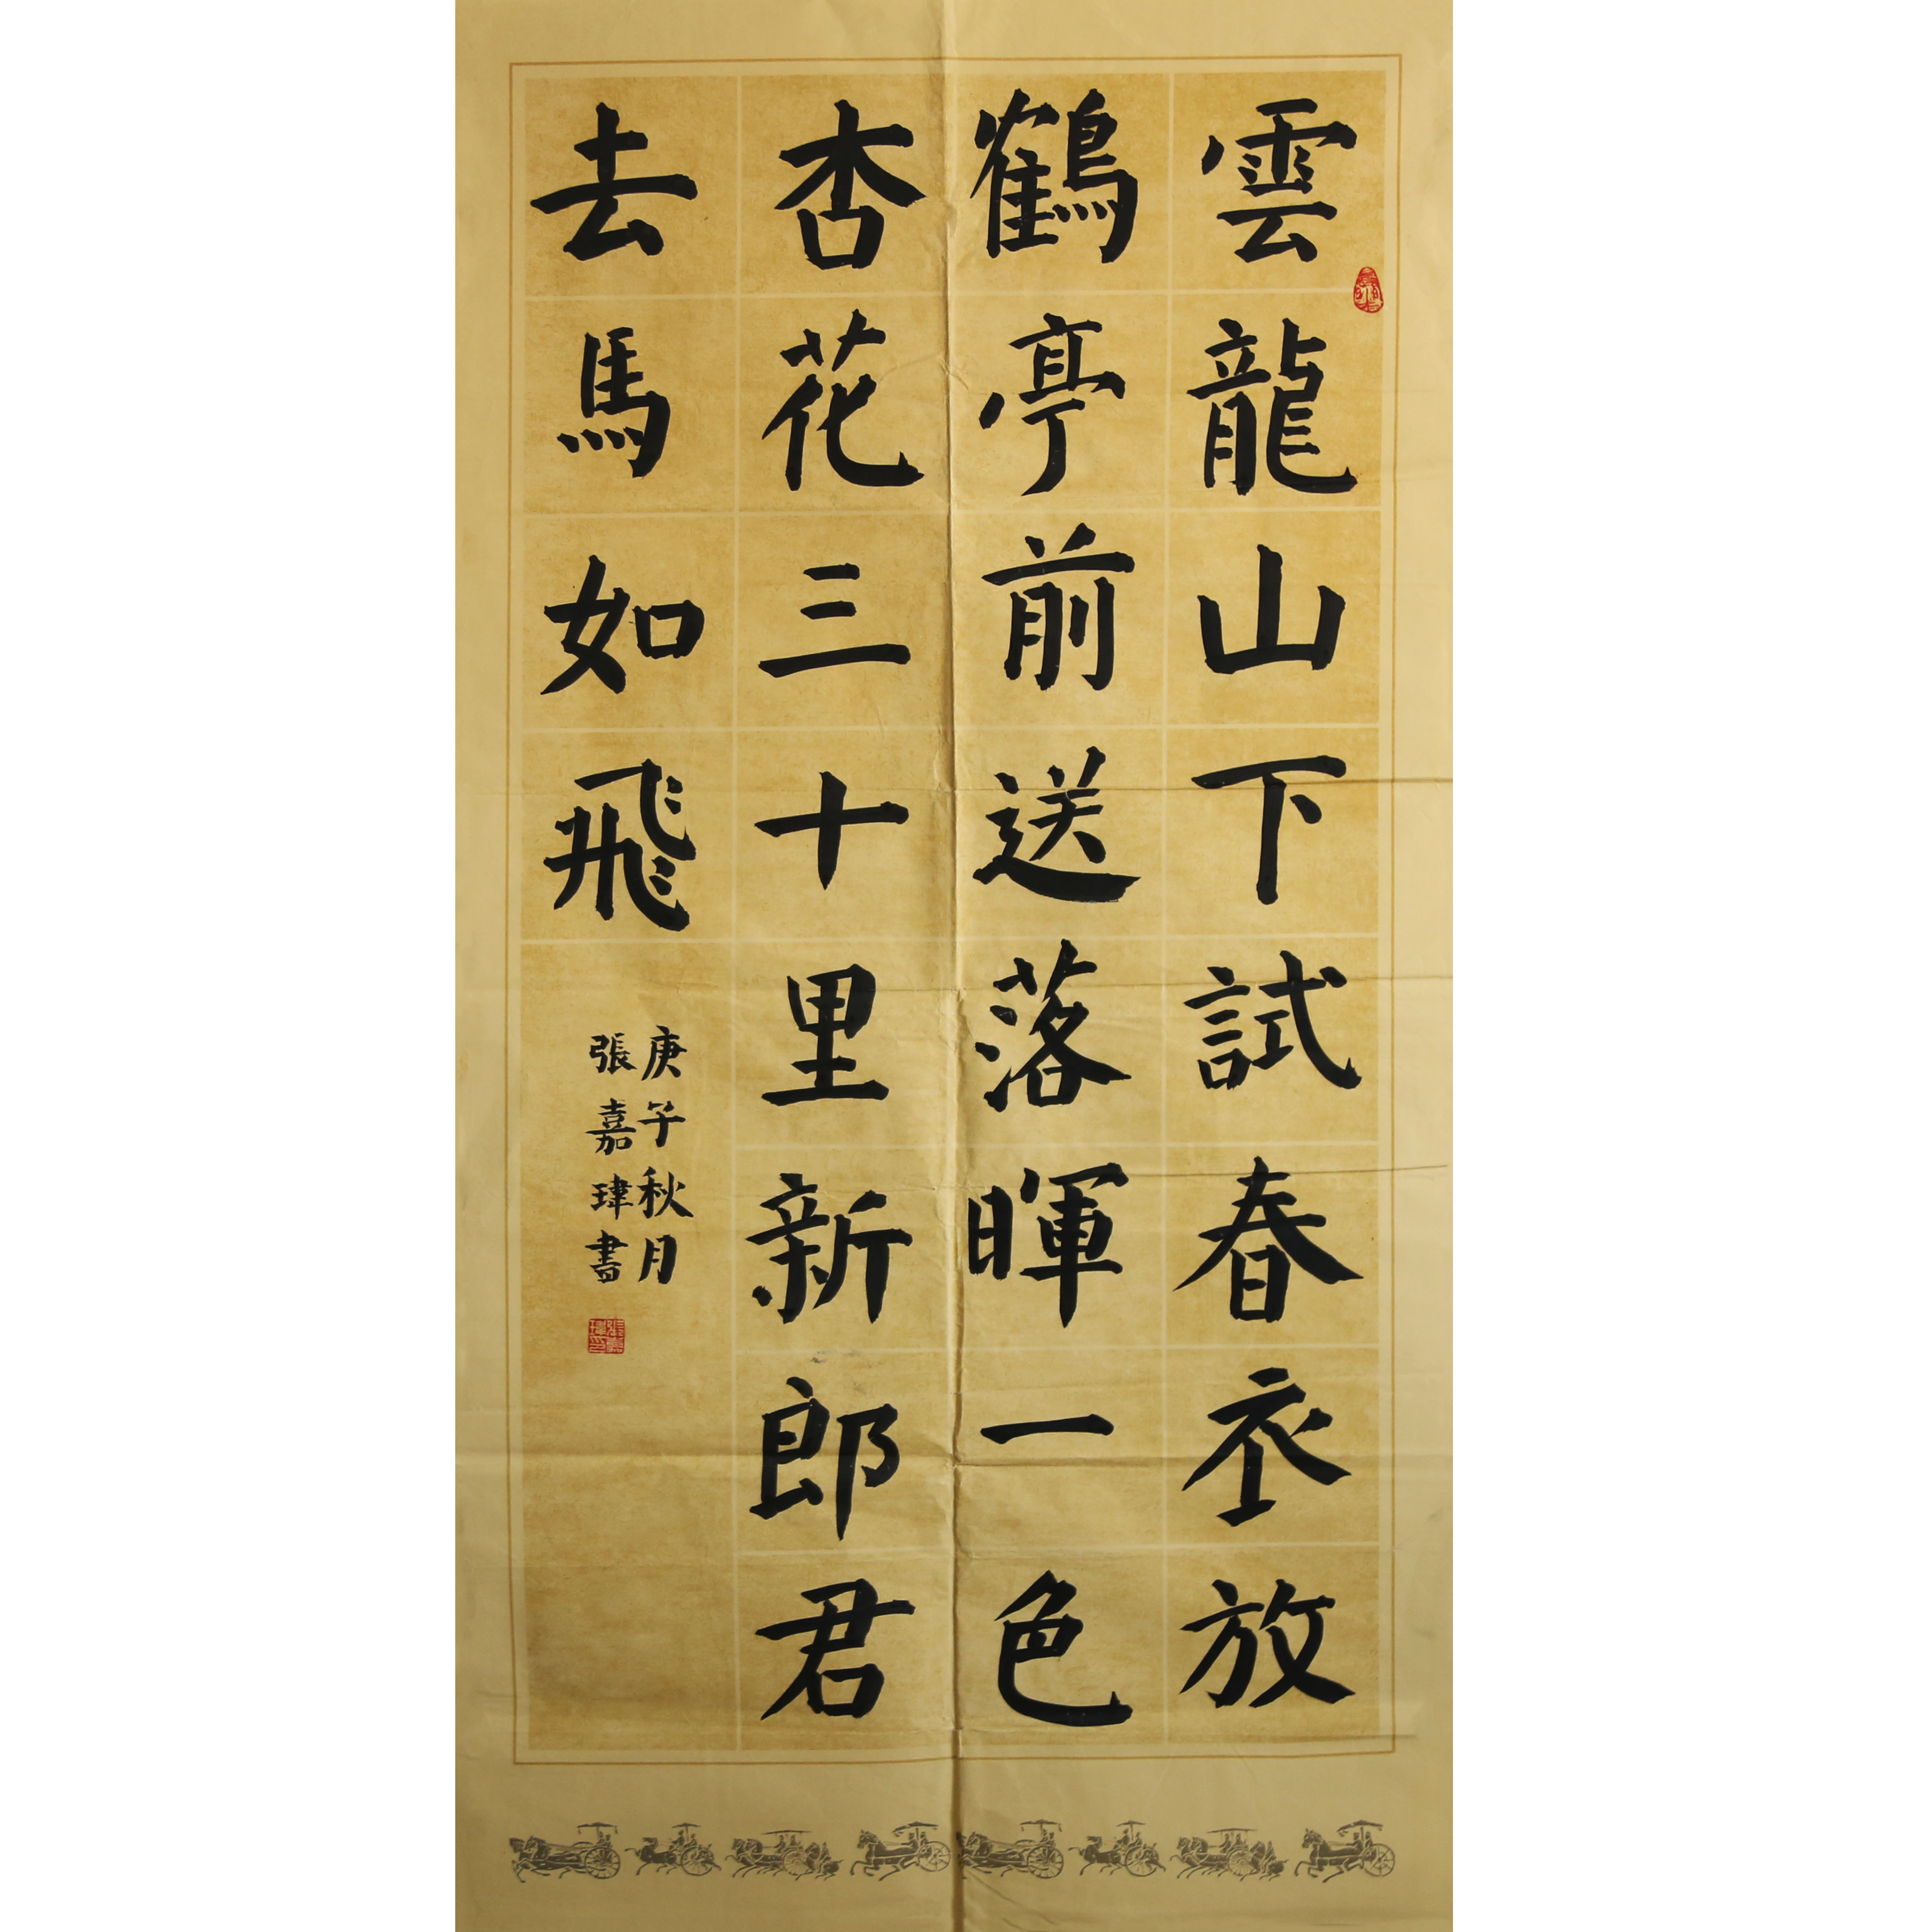 雲龍山下試春衣放
鶴亭前送落暉一色
杏花三十里新郎君
去馬如飛
庚子秋月
張嘉瑋書